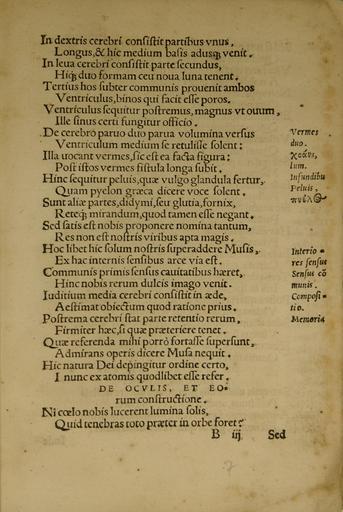 In dextris cerebri consistit partibus vnus,
Longus, & hic medium basis adusq; venit.
In leua cerebri consistit parte secundus,
Hiq; duo formam ceu noua luna tenent.
Tertius hos subter communis prouenit ambos
Ventriculus, binos qui facit esse poros.
Ventriculus sequitur postremus, magnus vt ouum,
Ille sinus certi fungitur officio.
De cerebro paruo duo parua volumina versus
Ventriculum medium se retulisse solent:
Illa uocant vermes, sic est ea facta figura:
Post istos vermes fistula longa subit.
Hinc sequitur peluis, quæ vulgo glandula fertur,
Quam pyelon græca dicere voce solent.
Sunt aliæ partes, didymi, seu glutia, fornix,
Reteq; mirandum, quod tamen esse negant.
Sed satis est nobis proponere nomina tantum,
Res non est nostris viribus apta magis.
Hoc libet hic solum nostris superaddere Musis,
Ex hac internis sensibus arce via est.
Communis primis sensus cauitatibus hæret,
Hinc nobis rerum dulcis imago venit.
Iuditium media cerebri consistit in æde,
Aestimat obiectum quod ratione prius.
Postrema cerebri stat parte retentio rerum,
Firmiter hæc, si quæ præteriere tenet.
Quæ referenda mihi porrò fortasse supersunt,
Admirans operis dicere Musa nequit.
Hic natura Dei depingitur ordine certo,
I nunc ex atomis quodlibet esse refer.
DE OCVLIS, ET EO-
rum constructione.
Ni cœlo nobis lucerent lumina solis,
Quid tenebras toto præter in orbe foret?
B iij Sed
Vermes
duo.
lum.
Infundibu
Peluis,
Interio-
res sensus
Sensus cō
munis.
Composi-
tio.
Memoria